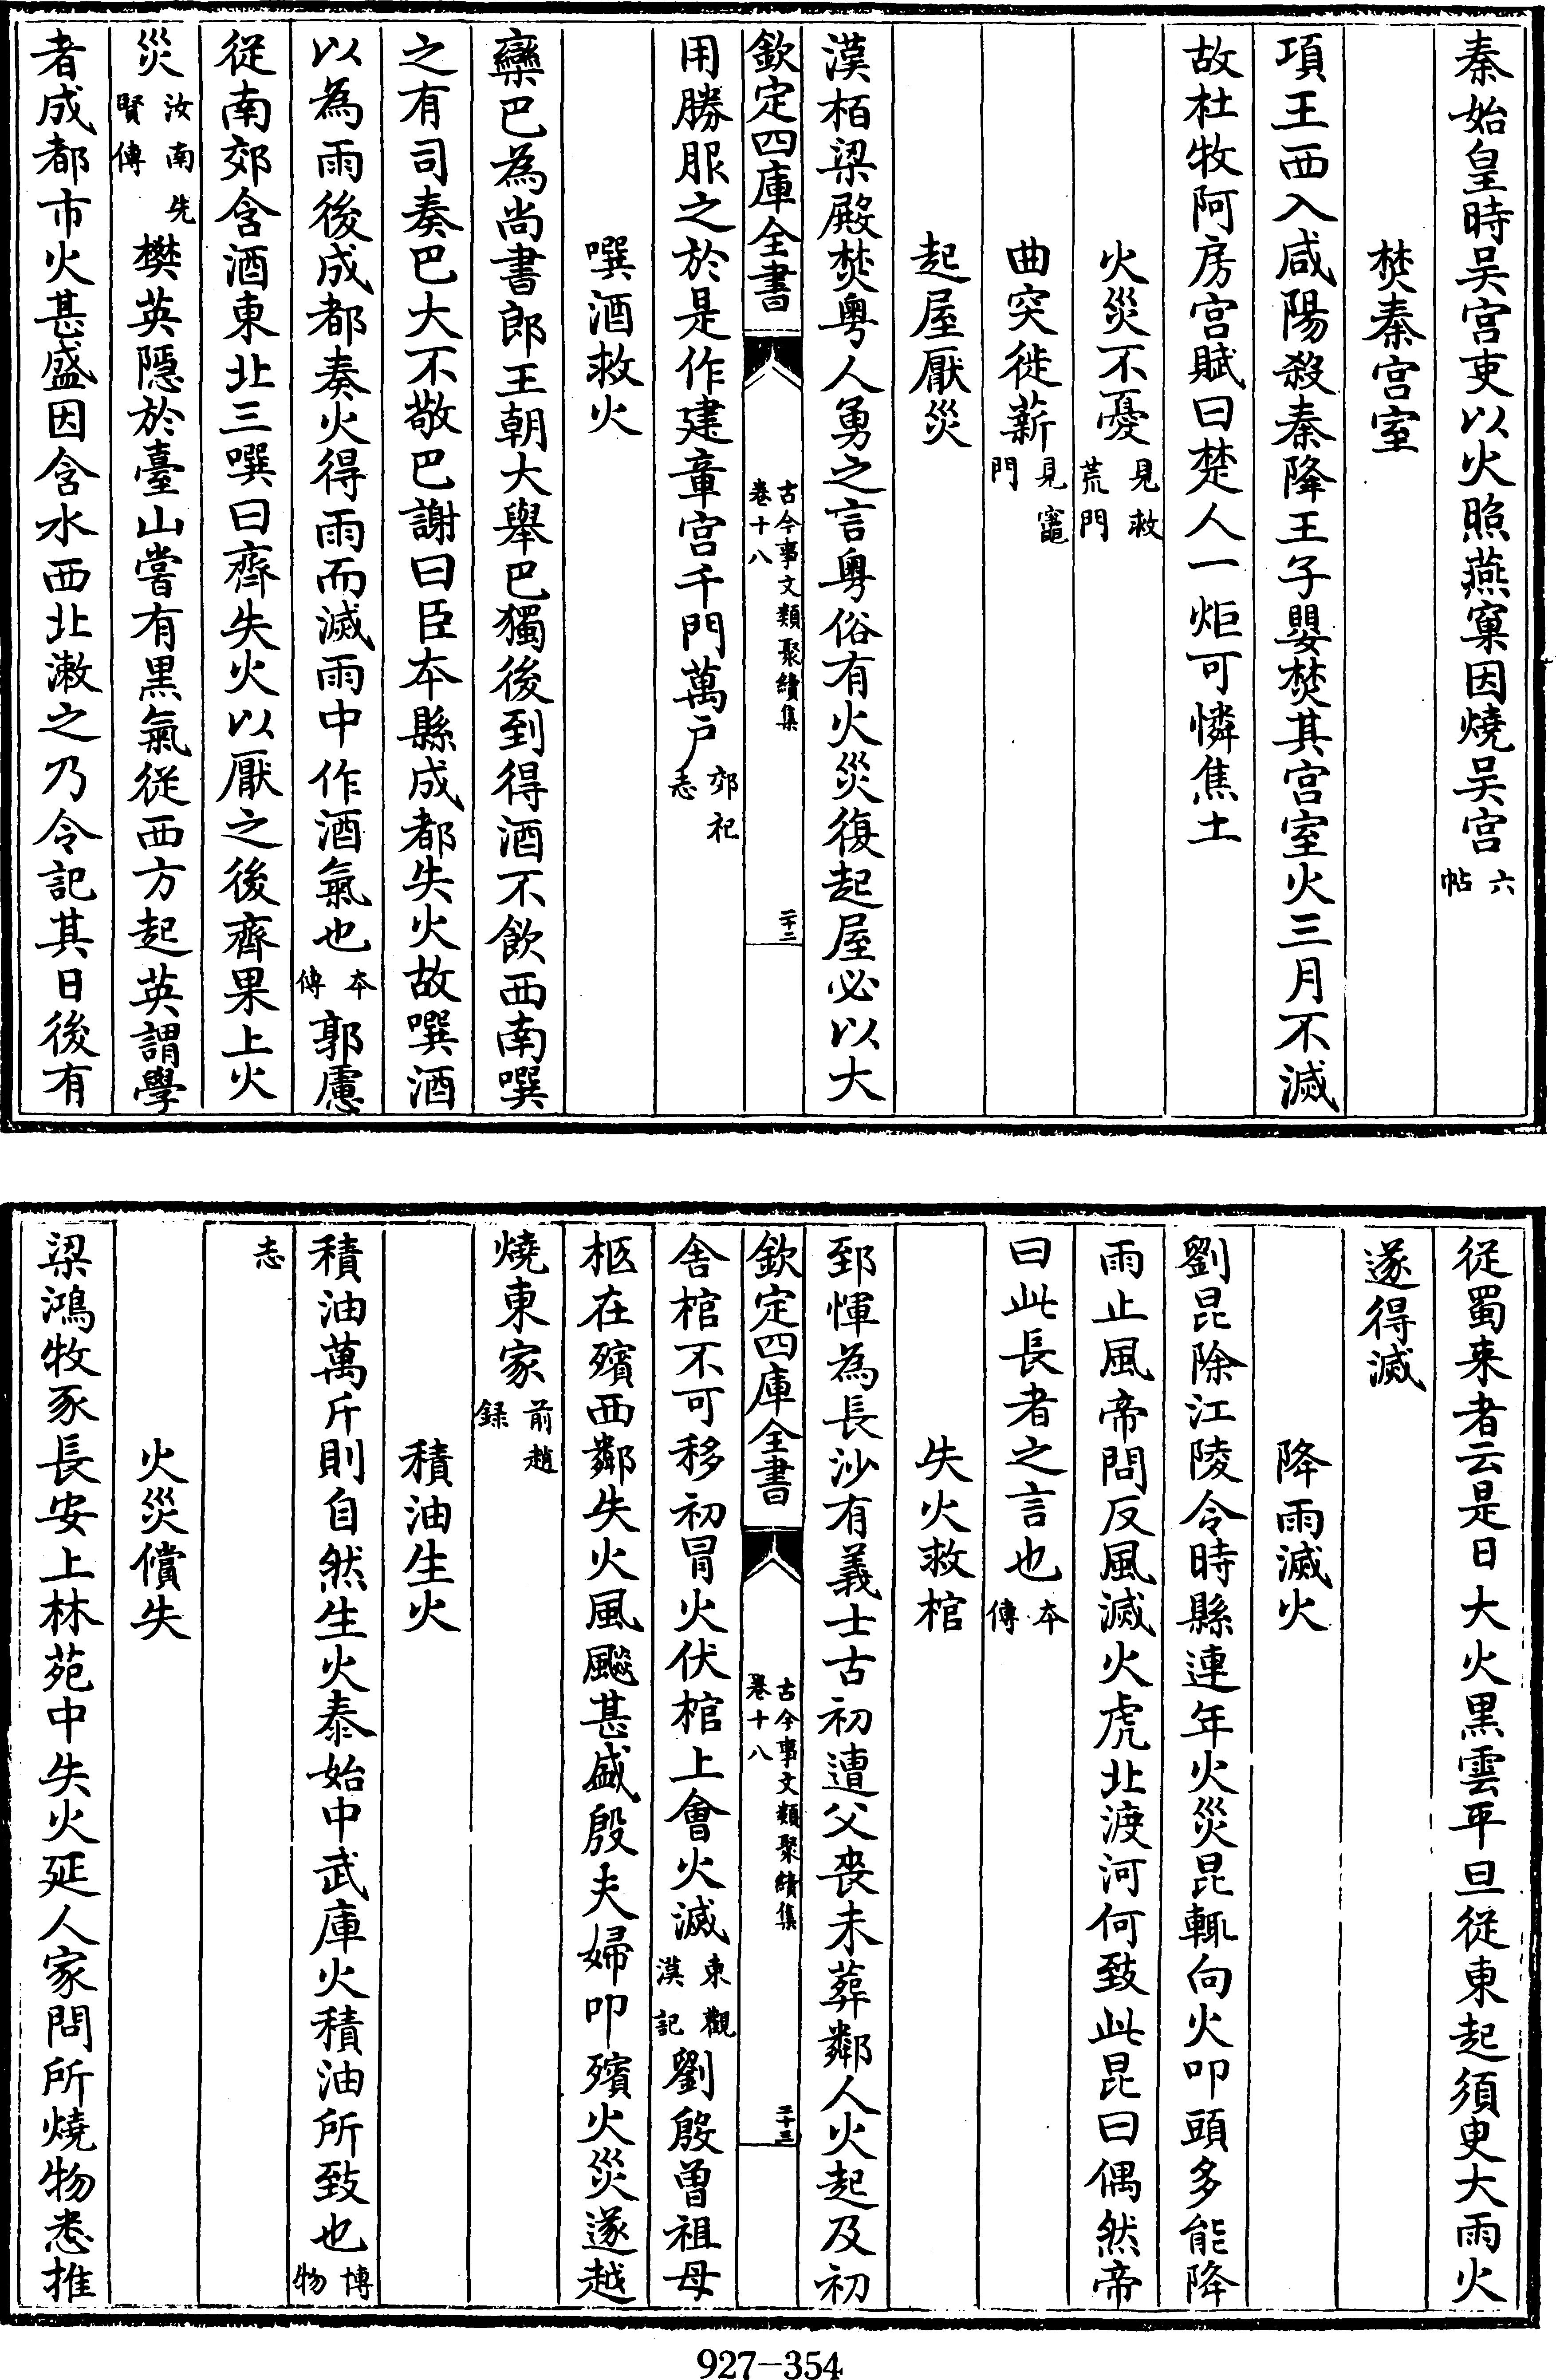 秦始皇時吴宫吏以火照燕窠因燒吴宫六帖
焚秦宫室
項王西入咸陽殺秦降王子嬰焚其宫室火三月不滅
故杜牧阿房宫賦曰楚人一炬可憐焦土
火災不憂見救荒門
曲突徙薪見竈門
起屋厭災
漢栢梁殿焚粤人勇之言粤俗有火災復起屋必以大
欽定四庫全書 古今事文類聚續集 卷十八 二十二
用勝服之於是作建章宫千門萬户郊祀志
噀酒救火
欒巴為尚書郎王朝大舉巴獨後到得酒不飲西南噀
之有司奏巴大不敬巴謝曰臣本縣成都失火故噀酒
以為雨後成都奏火得雨而滅雨中作酒氣也本傳郭憲
從南郊含酒東北三噀曰齊失火以厭之後齊果上火
災汝南先賢傳樊英隱於臺山嘗有黒氣從西方起英謂學
者成都市火甚盛因含水西北漱之乃令記其日後有
從蜀来者云是日大火黒雲平旦從東起須臾大雨火
遂得滅
降雨滅火
劉昆除江陵令時縣連年火災昆輒向火叩頭多能降
雨止風帝問反風滅火虎北渡河何致此昆曰偶然帝
曰此長者之言也本傳
失火救棺
郅惲為長沙有義士古初遭父喪未葬鄰人火起及初
欽定四庫全書 古今事文類聚續集 卷十八 二十三
舍棺不可移初冒火伏棺上會火滅東觀漢記劉殷曾祖母
柩在殯西鄰失火風飈甚盛殷夫婦叩殯火災遂越
燒東家前趙録
積油生火
積油萬斤則自然生火泰始中武庫火積油所致也博物
志
火災償失
梁鴻牧豕長安上林苑中失火延人家問所燒物悉推
927-354